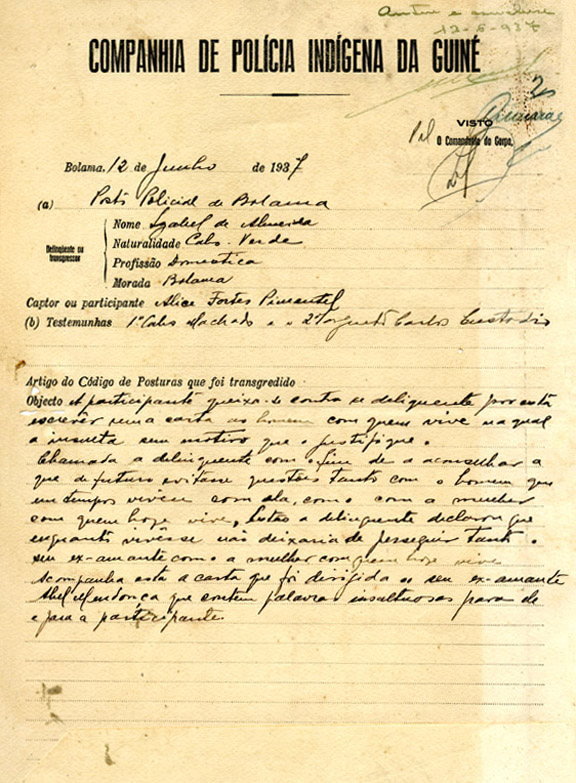 12-6-937
COMPANHIA DE POLÍCIA INDÍGENA DA GUINÉ
VISTO
O Comandante do Corpo,
Bolama, 12 de Junho de 1937
(a) Posto Policial de Bolama
Delinqüente ou transgressor
Nome Izabel de Almeida
Naturalidade Cabo-Verde
Profissão Domestica
Morada Bolama
Captor ou participante Alice Fortes Pimentel
(b) Testemunhas 1º Cabo Machado e o 2º Sargento Carlos Custodio
Artigo do Código de Posturas que foi transgredido
Objecto A participante queixa-se contra se delinquente por esta
escrever uma carta ao homem com quem vive na qual
a insulta sem motivo que o justifique.
Chamada a delinquente com o fim de a aconselhar a
que de futuro evitasse questões tanto com o homem que
em tempos viveu com ela, como com a mulher
com quem hoje vive, então a delinquente declarou que
enquanto vivesse não deixaria de perseguir tanto o
seu ex-amante como a mulher com quem hoje vive
Acompanha esta a carta que foi dirigida ao seu ex-amante
Abel Mendonça que contem palavras insultuosas para ele
e para a participante.